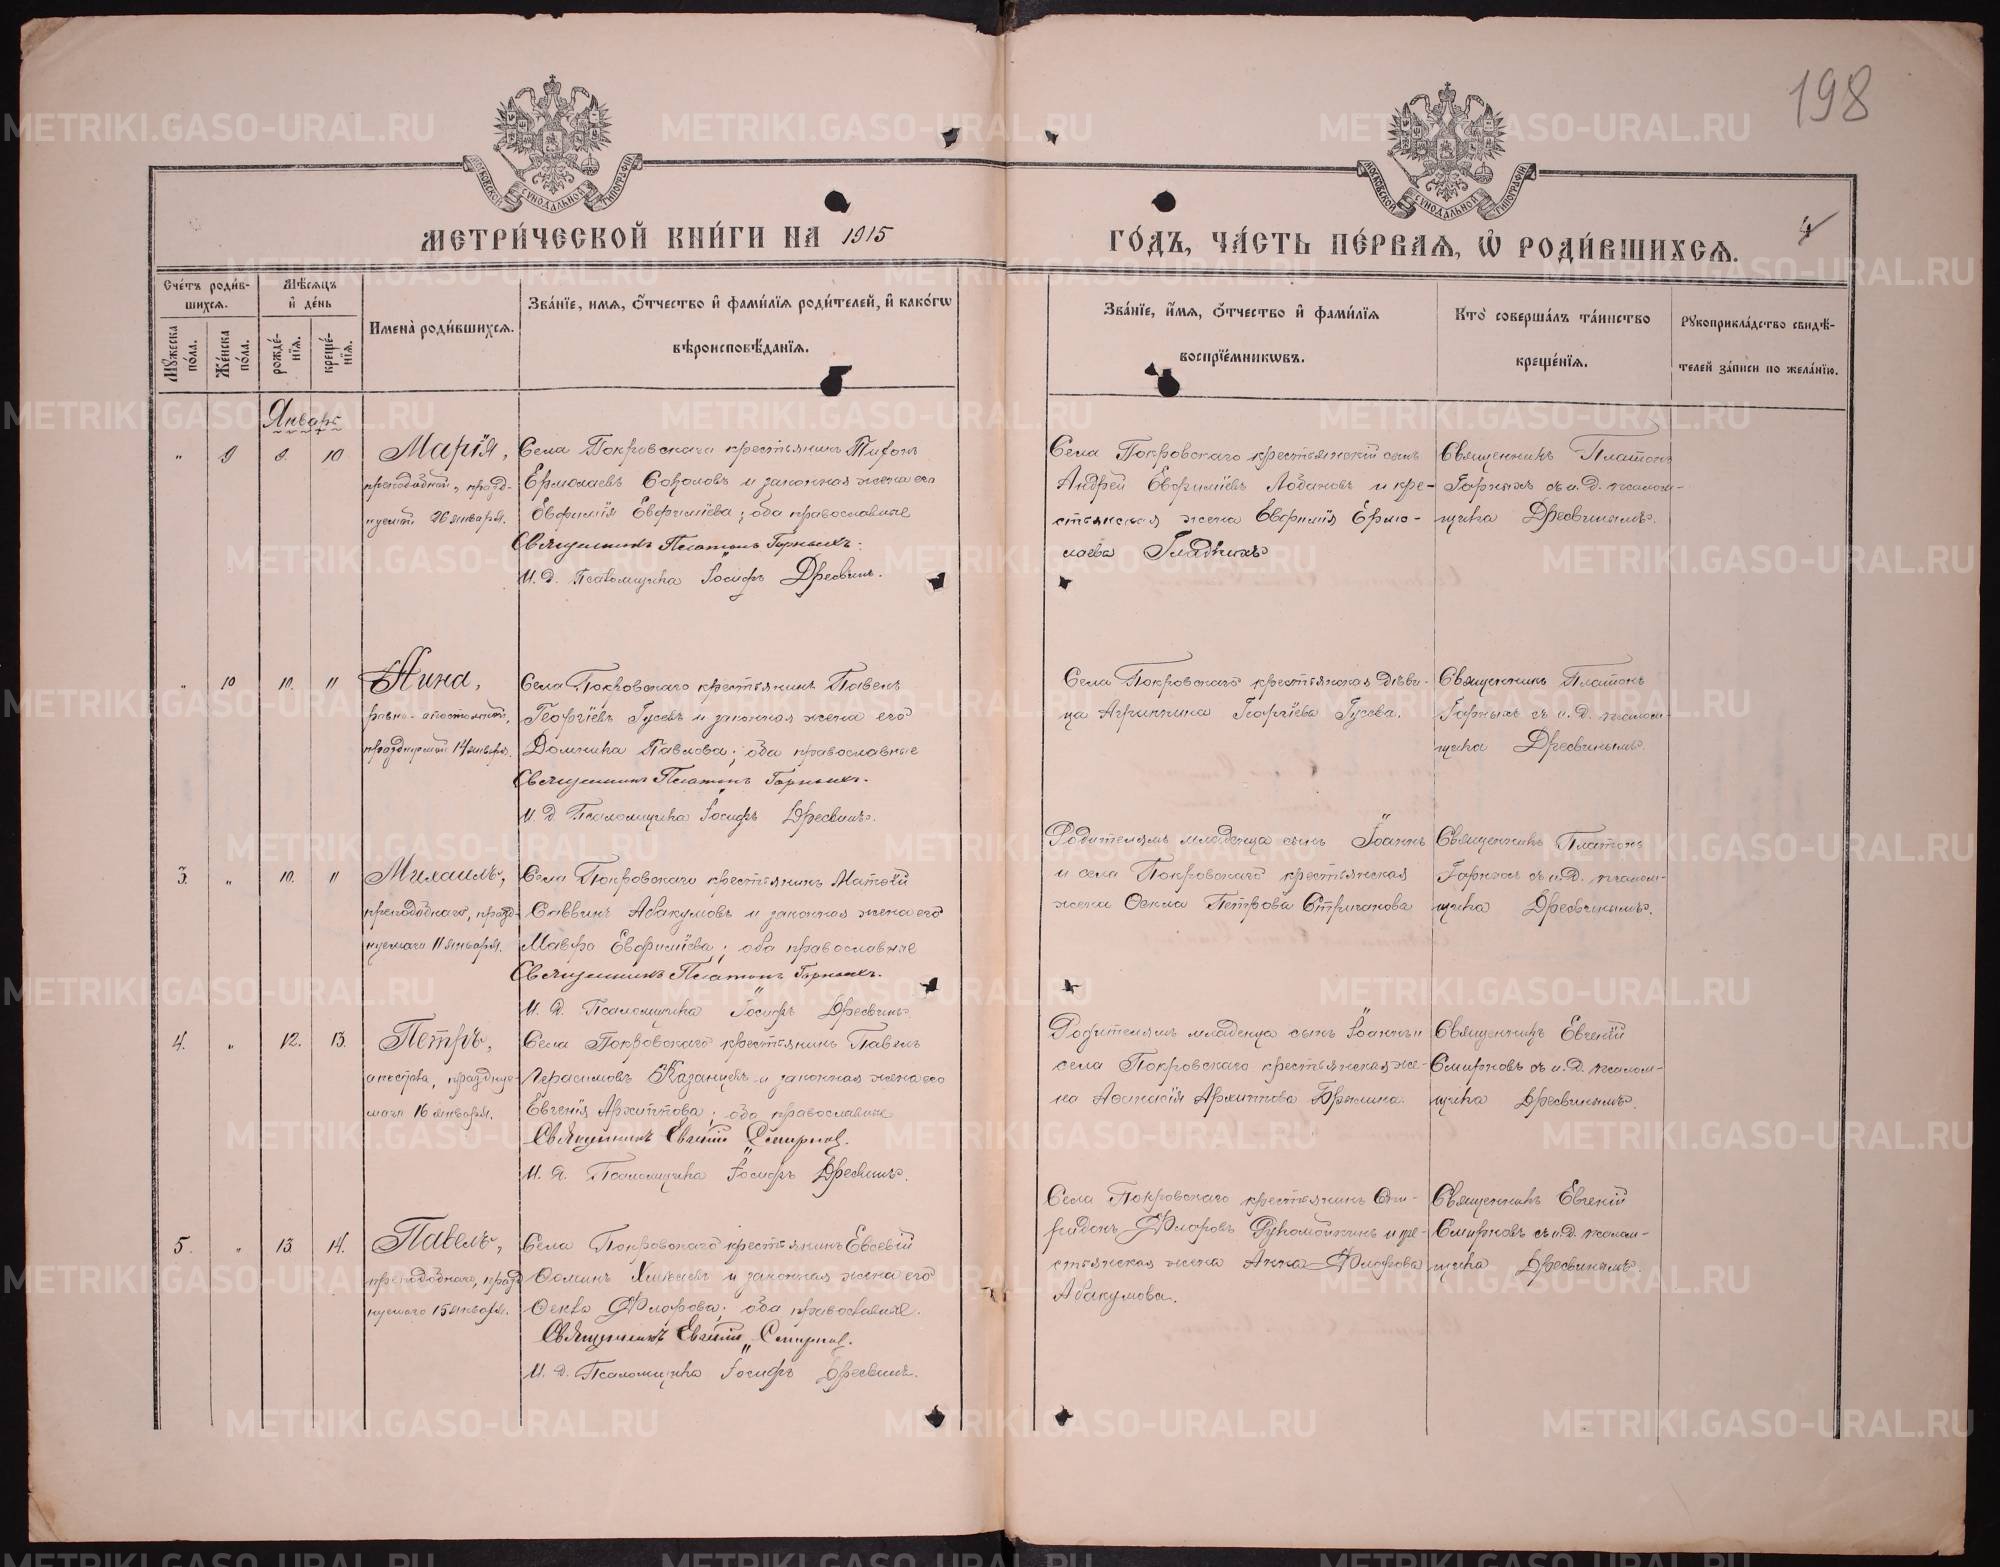 198
МОСКОВСКОЙ СУНОДАЛЬНОЙ ТИПОГРАФІИ
МОСКОВСКОЙ СУНОДАЛЬНОЙ ТИПОГРАФІИ
МЕТРИ́ЧЕСКОЙ КНИ́ГИ НА 1915
ГО́ДЪ, ЧА́СТЬ ПЕ́РВАЯ, Ѽ РОДИ́ВШИХСЯ.
4
Сче́тъ роди́в-
шихся.
Мѣ́сяцъ
и҆ де́нь
Мꙋ́жеска по́ла.
Же́нска по́ла.
рожде́-
нїя.
креще́-
нїя.
Имена̀ роди́вшихся.
Зва́нїе, имя, ѻ҆́тчество и҆ фами́лїя роди́телей, и҆ како́гѡ
вѣроисповѣ́данїя.
Зва́нїе, и҆́мя, ѻ҆́тчество и҆ фами́лїя
воспрїе́мникѡвъ.
Кто̀ соверша́лъ та́инство
креще́нїя.
Рꙋкоприкла́дство свидѣ́-
телей за́писи по жела́нїю.
Январь
" 9 9. 10
Марія,
преподобной, празд-
нуемой 26 января.
Села Покровскаго крестьянинъ Тихонъ
Ермолаевъ Соколовъ и законная жена его
Евфимія Евфиміева; оба православные
Священникъ Платонъ Горныхъ.
И. д. Псаломщика Іосифъ Дресвинъ.
Села Покровскаго крестьянскій сынъ
Андрей Евфиміевъ Лобановъ и кре-
стьянская жена Евфимія Ермо-
лаева Гладкихъ
Священникъ Платонъ
Горныхъ съ и. д. псалом-
щика Дресвинымъ.
" 10 10. 11
Нина,
равно-апостольной,
празднуемой 14 января.
Села Покровскаго крестьянинъ Павелъ
Георгіевъ Гусевъ и законная жена его
Домника Павлова; оба православные
Священникъ Платонъ Горныхъ.
И. д Псаломщика Іосифъ Дресвинъ.
Села Покровскаго крестьянская дѣви-
ца Агриппина Георгіева Гусева.
Священникъ Платонъ
Горныхъ съ и. д. псалом-
щика Дресвинымъ.
3. " 10. 11
Михаилъ,
преподобнаго, празд-
нуемаго 11 января.
Села Покровскаго крестьянинъ Матѳій
Саввинъ Абакумовъ и законная жена его
Мавра Евфиміева; оба православные
Священникъ Платонъ Горныхъ.
И. д. Псаломщика Іосифъ Дресвинъ.
Родителямъ младенца сынъ Іоаннъ
и села Покровскаго крестьянская
жена Ѳекла Петрова Стриганова
Священникъ Платонъ
Горныхъ съ и. д. псалом-
щика Дресвинымъ.
4. " 12. 13.
Петръ,
апостола, праздну-
маго 16 января.
Села Покровскаго крестьянинъ Павелъ
Герасимовъ Казанцевъ и законная жена его
Евгенія Архиппова; оба православные
Священникъ Евгеній Смирновъ.
И. д. Псаломщика Іосифъ Дресвинъ.
Родителямъ младенца сынъ Іоаннъ и
села Покровскаго крестьянская же-
на Аѳанасія Архиппова Брылина.
Священникъ Евгеній
Смирновъ съ и. д. псалом-
щика Дресвинымъ.
5. " 13. 14.
Павелъ,
преподобнаго, празд
нуемаго 15 января.
Села Покровскаго крестьянинъ Евсевій
Ѳоминъ и законная жена его
Ѳекла Флорова; оба православные.
Священникъ Евгеній Смирновъ.
И. д. Псаломщика Іосифъ Дресвинъ.
Села Покровскаго крестьянинъ Спи-
ридонъ Флоровъ Рукомойкинъ и кре-
стьянская жена Анна Флорова
Абакумова.
Священникъ Евгеній
Смирновъ съ и. д. псалом-
щика Дресвинымъ.
METRIKI.GASO-URAL.RU